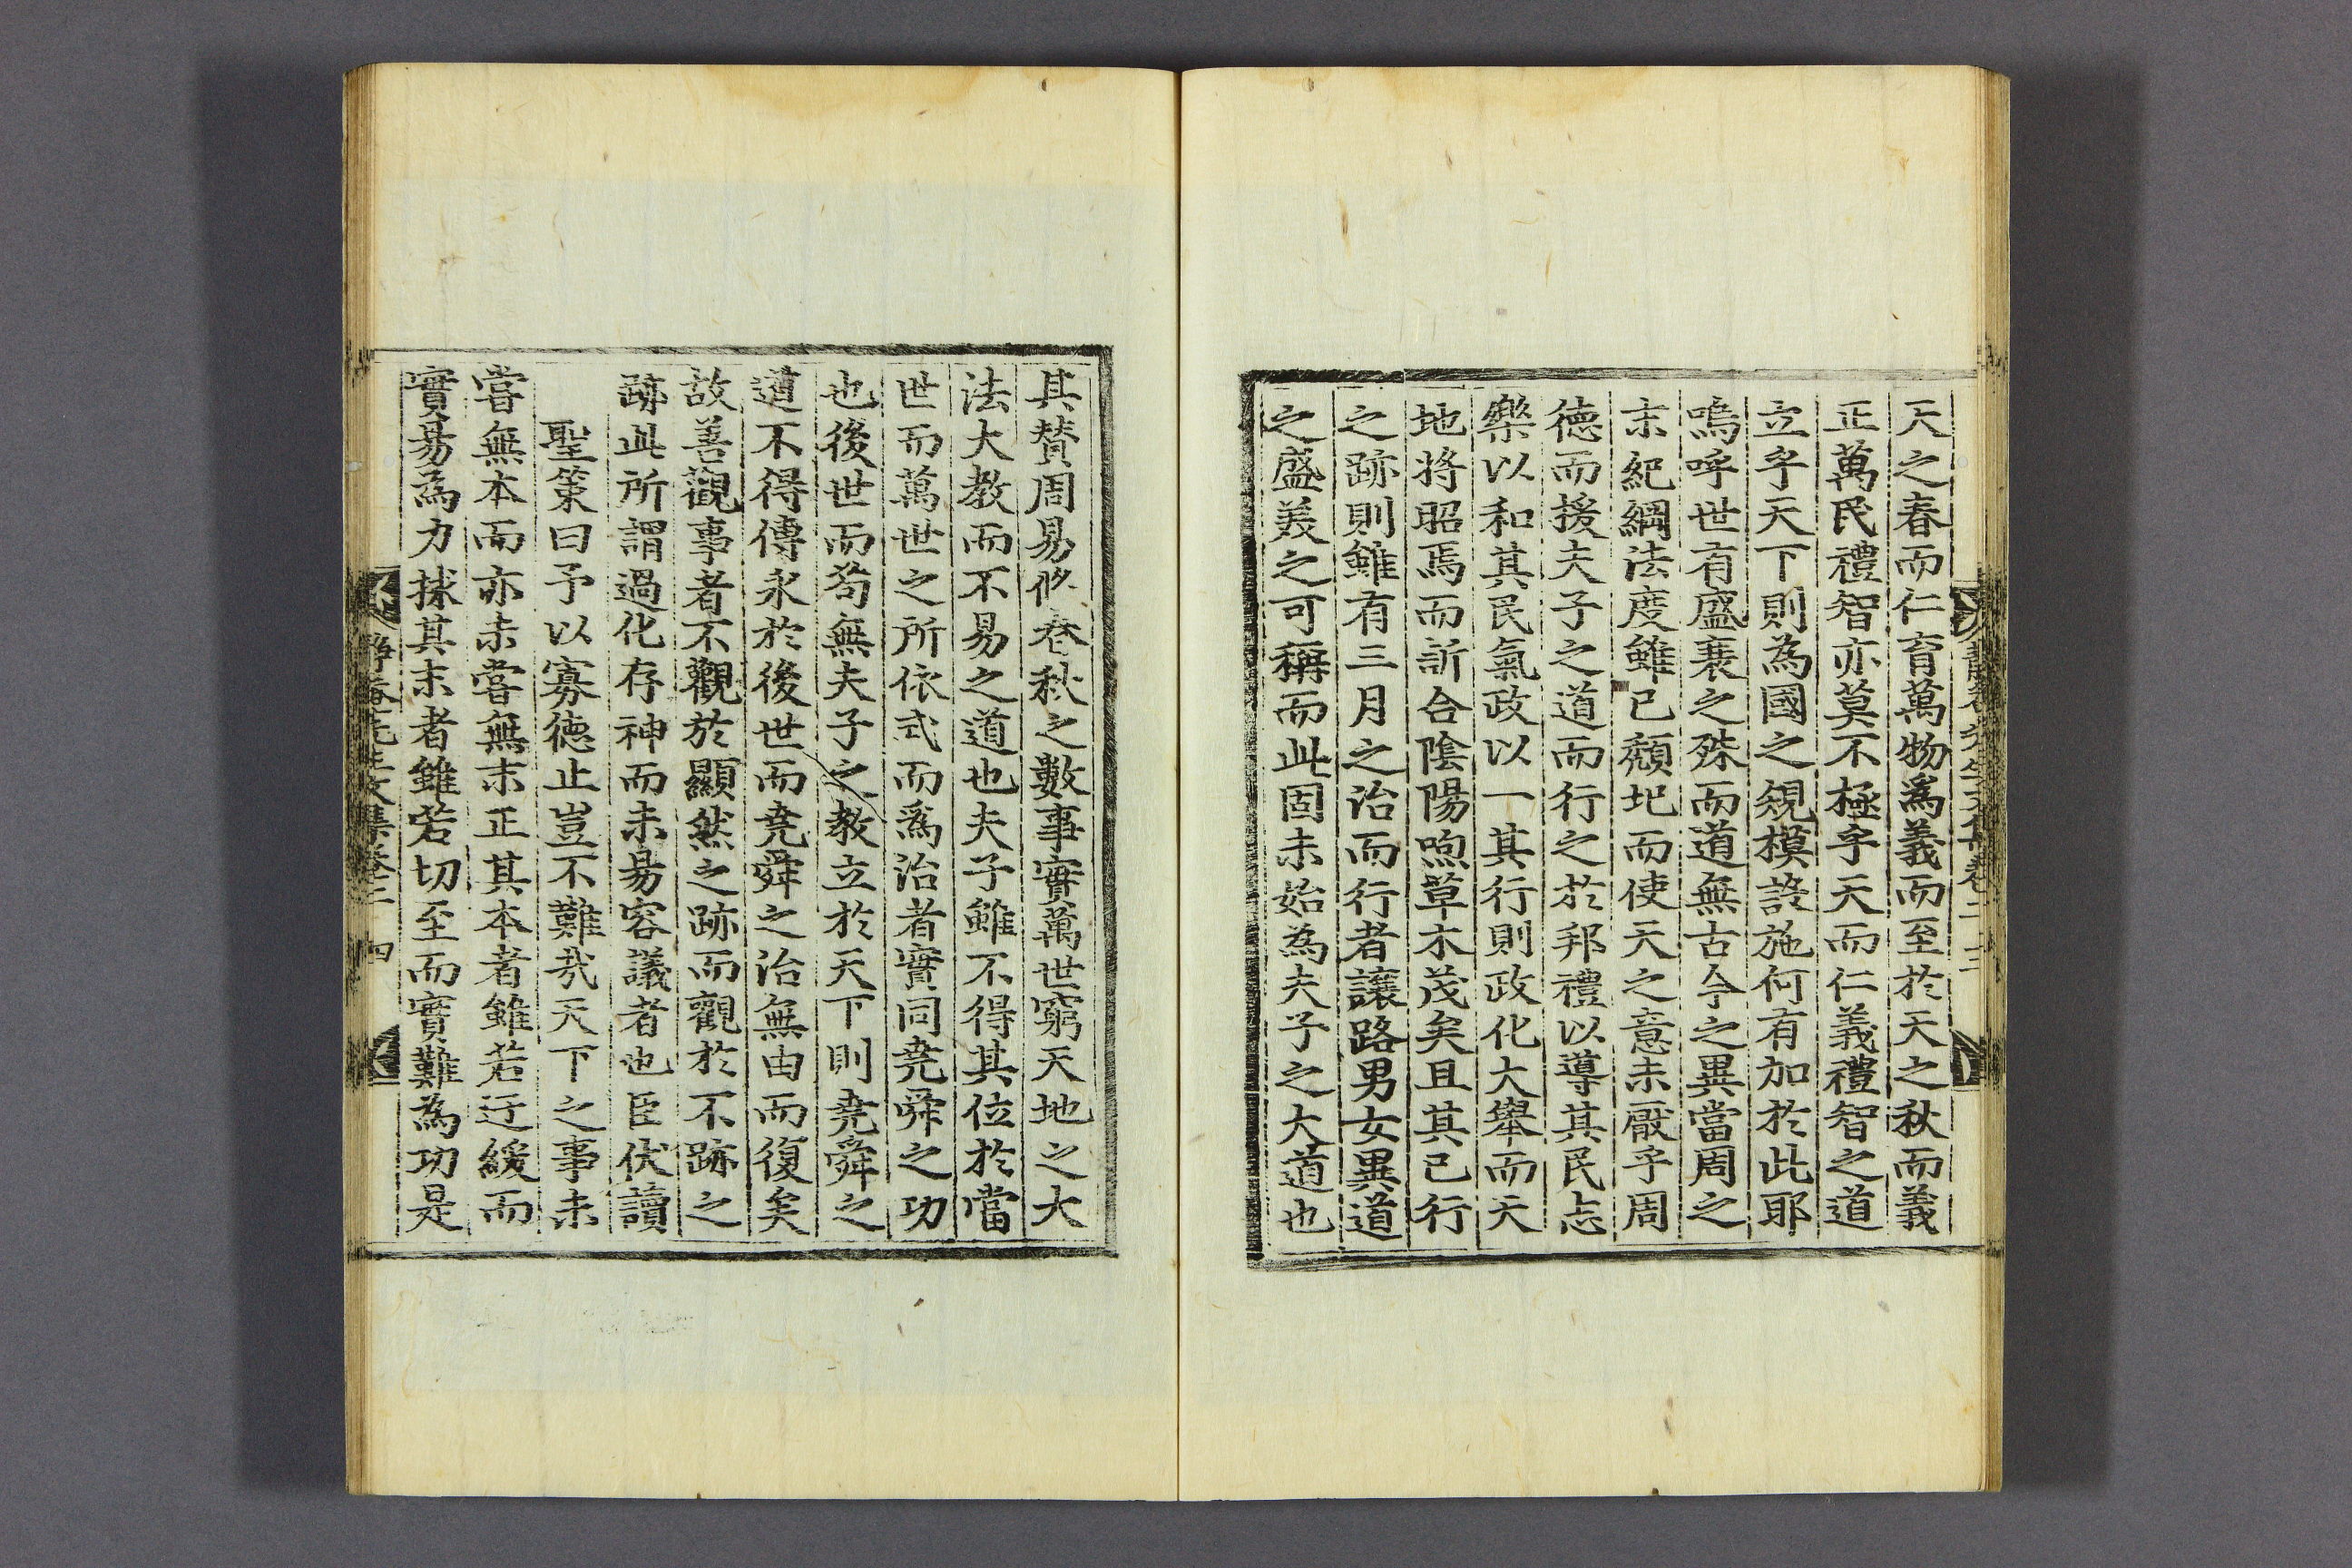 天之春而仁育萬物爲義而至於天之秋而義
正萬民禮智亦莫不極乎天而仁義禮智之道
立乎天下則為國之規模設施何有加於此耶
嗚呼世有盛衰之殊而道無古今之異當周之
末紀綱法度雖已頹圯而使天之意未厭乎周
德而援夫子之道而行之於邦禮以導其民志
樂以和其民氣政以一其行則政化大舉而天
地將昭焉而訢合陰陽煦草木茂矣且其已行
之跡則雖有三月之治而行者讓路男女異道
之盛羙之可稱而此固未始為夫子之大道也
其賛周易修春秋之數事實萬世窮天地之大
法大教而不易之道也夫子雖不得其位於當
世而萬世之所依式而爲治者實同堯舜之功
也後世而苟無夫子之教立於天下則堯舜之
道不得傳永於後世而堯舜之治無由而復矣
故善觀事者不觀於顯然之跡而觀於不跡之
跡此所謂過化存神而未易容議者也臣伏讀
聖策曰予以寡德止豈不難㢤天下之事未
嘗無本而亦未嘗無末正其本者雖若迂緩而
實易為力捄其末者雖若切至而實難為功是
靜菴先生文集卷之二 四